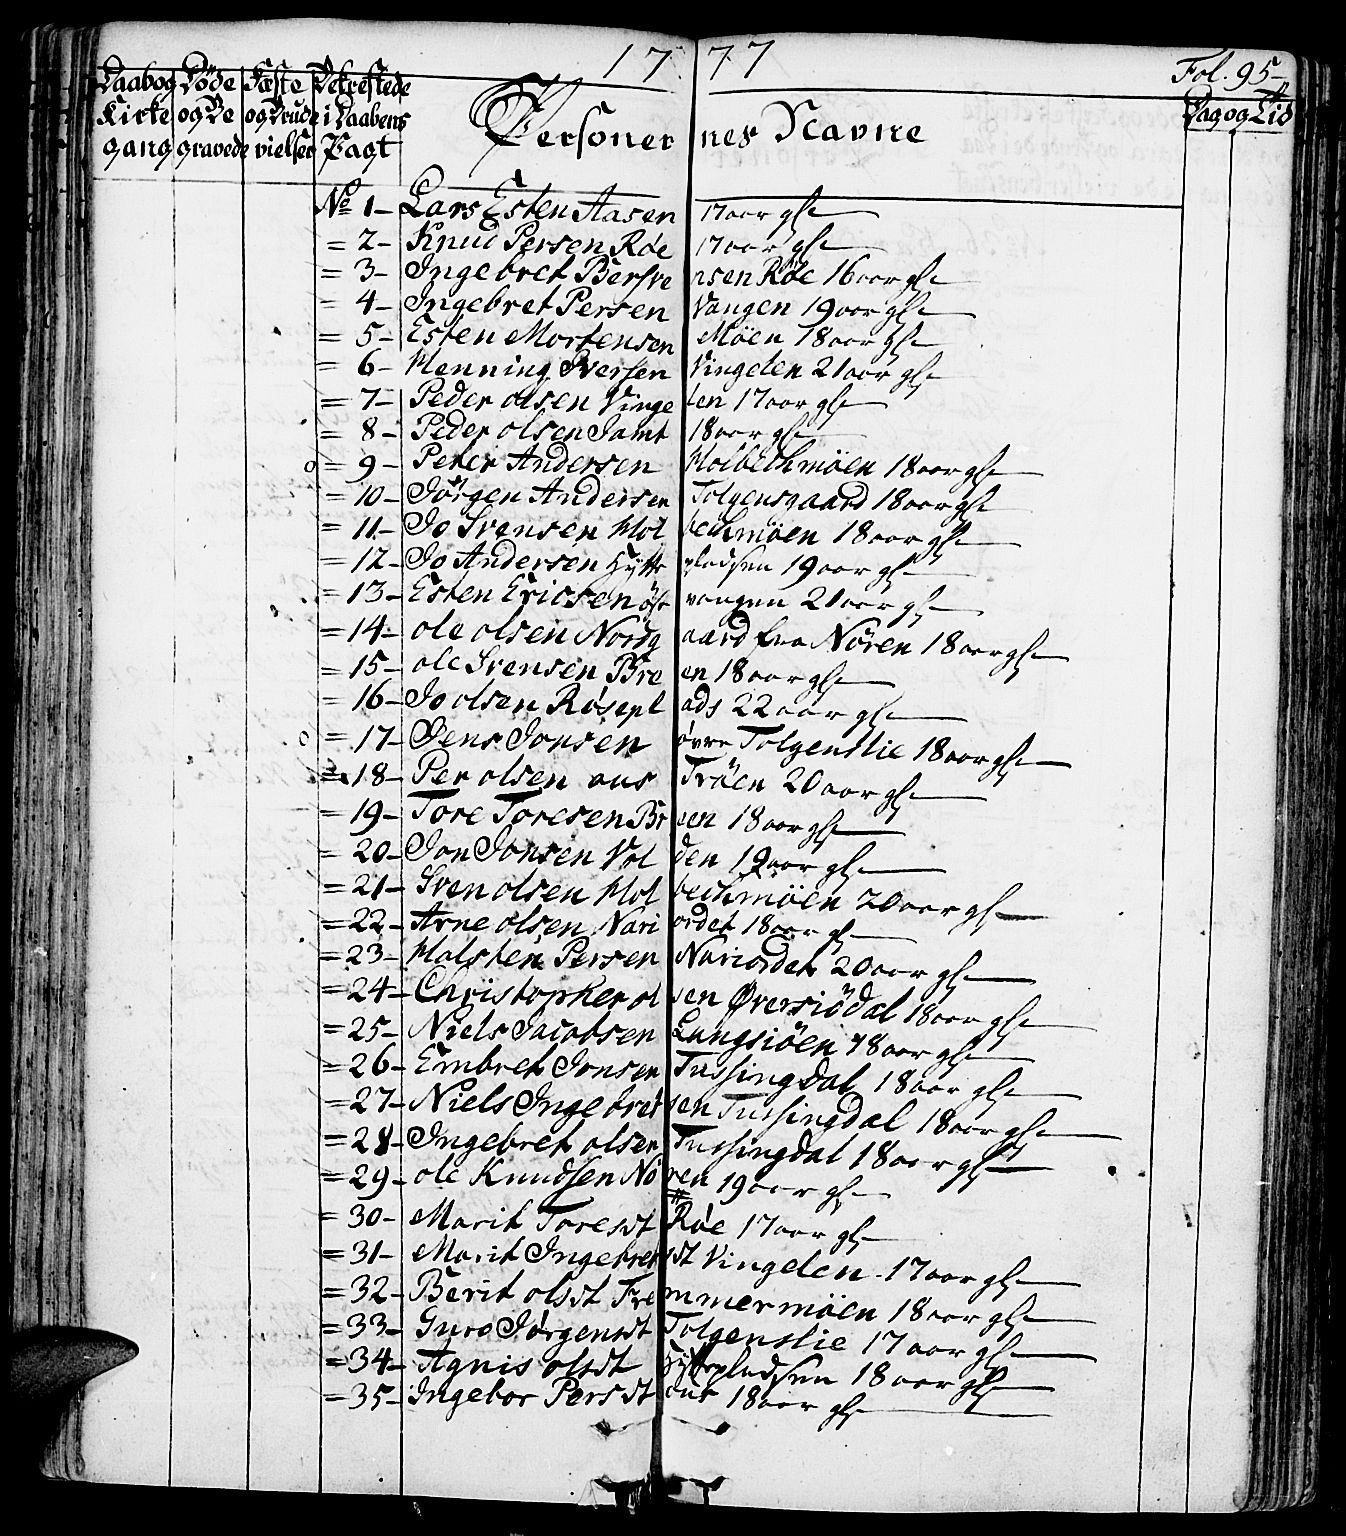 1777
Fol. 95-
Daabog Døde Fæste Bekrestede
Kirke og Be og Brude i Daabens
gang gravede vielser Pagt
Personernes Navne
Dag og Tid
No 1- Lars Esten Aasen 17 aar gl-
= 2- Knud Persen Røe 17 aar gl-
= 3- Ingebret Bersvensen Røe 16 aar gl-
= 4- Ingebret Persen Vangen 19 aar gl-
= 5- Esten Mortensen Møen 18 aar gl-
= 6- Henning Iversen Vingelen 21 aar gl-
= 7- Peder olsen Vingelen 17 aar gl-
= 8- Peder olsen Jamt 18 aar gl-
o = 9- Peter Andersen Holbechmøen 18 aar gl-
= 10- Jørgen Andersen Tolgensgaard 18 aar gl-
= 11- Jo Svensen Holbechmøen 18 aar gl-
= 12- Jo Andersen Hyttepladsen 19 aar gl-
= 13- Esten Ericsen østvangen 21 aar gl-
= 14- ole olsen Nordgaard fra Nøren 18 aar gl-
= 15- ole Svensen Breen 18 aar gl-
= 16- Jo olsen Røseplads 22 aar gl-
o = 17- Jens Jonsen øvre Tolgenslie 18 aar gl-
= 18- Per olsen aus Trøen 20 aar gl-
= 19- Tore Toresen Breen 18 aar gl-
= 20- Jon Jonsen Volden 19 aar gl-
= 21- Sven olsen Holbechmøen 20 aar gl-
= 22- Arne olsen Nariordet 18 aar gl-
= 23- Halsten Persen Nariordet 20 aar gl-
= 24- Christopher olsen Øversiødal 18 aar gl-
= 25- Niels Jacobsen Langsiøen 18 aar gl-
= 26- Embret Jonsen Tussingdal 18 aar gl-
= 27- Niels Ingebretsen Tussingdal 18 aar gl-
= 28- Ingebret olsen Tussingdal 18 aar gl-
= 29- ole Knudsen Nøren 19 aar gl-
= 30- Marit Toresdt Røe 17 aar gl-
= 31- Marit Ingebretsdt Vingelen 17 aar gl-
= 32- Berit olsdt Fremmermøen 18 aar gl-
= 33- Guro Jørgensdt Tolgenslie 17 aar gl-
= 34- Agnis olsdt Hyttepladsen 18 aar gl-
= 35- Ingebor Persdt aus 18 aar gl-